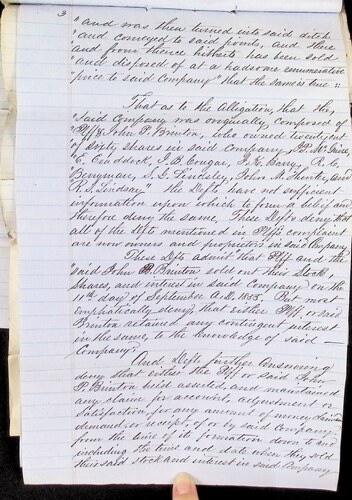 3
" and was then turned into said ditch
" and conveyed to said points, and there
" and from thence hitherto has been sold
" and disposed of at a handsome remunerative
" price to said Company" that the same is true ::
That as to the Allegation, that the
" said Company was originally composed of
" Plff & John P. Brinton, who owned twenty out
" of sixty shares in said Company,
" J. B. Cougar, J. K. Berry, R. C.
" Berryman, S. L. Lindsley, John M. Hunter, and
" R. S. Lindsay" the Defts have not sufficient
information upon which to form a belief and
therefore deny the same. These Defts deny that
all of the Defts mentioned in Plffs complaint
are now owners and proprietors in said Company
These Defts admit that Plff and the
said John P. Brinton sold out their Stock,
shares, and interest in said Company on the
11th day of September A.D. 1855. But most
emphatically deny, that either Plff, or said
Brinton retained any contingent interest
in the same, to the knowledge of said —
Company.
And Defts further answering
deny that either the Plff or said John
P. Brinton held, asserted, and maintained
any claim for account, adjustment or
satisfaction, for any amount of money,
demand, or receipt, of or by said Company
from the time of its formation down to and
including the time and date when they sold
their said stock and interest in said Company